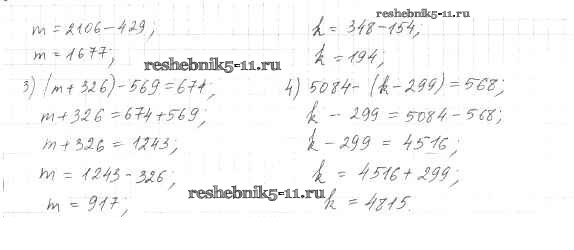 m = 2106 - 429;
m = 1677;
3) (m + 326) - 569 = 674;
m + 326 = 674 + 569;
m + 326 = 1243;
m = 1243 - 326;
m = 917;
reshebnik5-11.ru
k = 348 - 154;
k = 194;
reshebnik5-11.ru
4) 5084 - (k - 299) = 568;
k - 299 = 5084 - 568;
k - 299 = 4516;
k = 4516 + 299;
k = 4815.
reshebnik5-11.ru